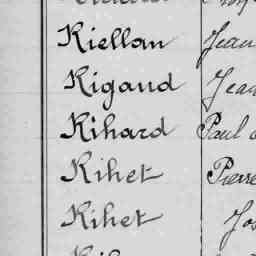 Kiellan Jean
Kigaud Jean
Kihard Paul
Kihet Pierre
Kihet